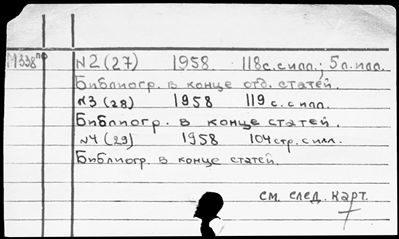 М338по №2 (27) 1958. 118 с. с илл.; 5 л. илл.
Библиогр. в конце отд. статей.
№3 (28) 1958 119 с. с илл.
Библиогр. в конце статей.
№4 (29) 1958 104 стр. с илл.
Библиогр. в конце статей.
см. след. карт.